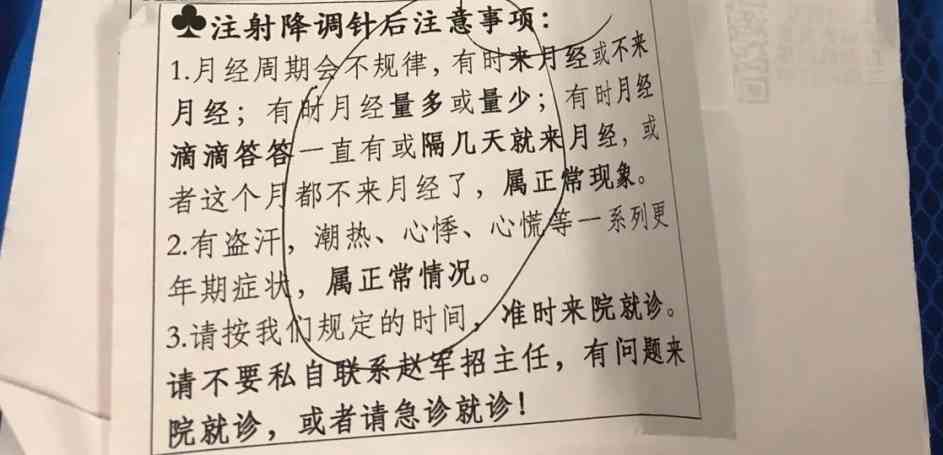 ♣注射降调针后注意事项：
1.月经周期会不规律，有时来月经或不来
月经；有时月经量多或量少；有时月经
滴滴答答一直有或隔几天就来月经，或
者这个月都不来月经了，属正常现象。
2.有盗汗，潮热、心悸、心慌等一系列更
年期症状，属正常情况。
3.请按我们规定的时间，准时来院就诊。
请不要私自联系赵军招主任，有问题来
院就诊，或者请急诊就诊！